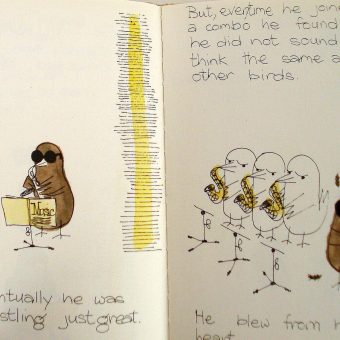 Music
ntually he was
stling just great.
But, everytime he joine
a combo he found
he did not sound
think the same a
other birds.
He blew from h
heart